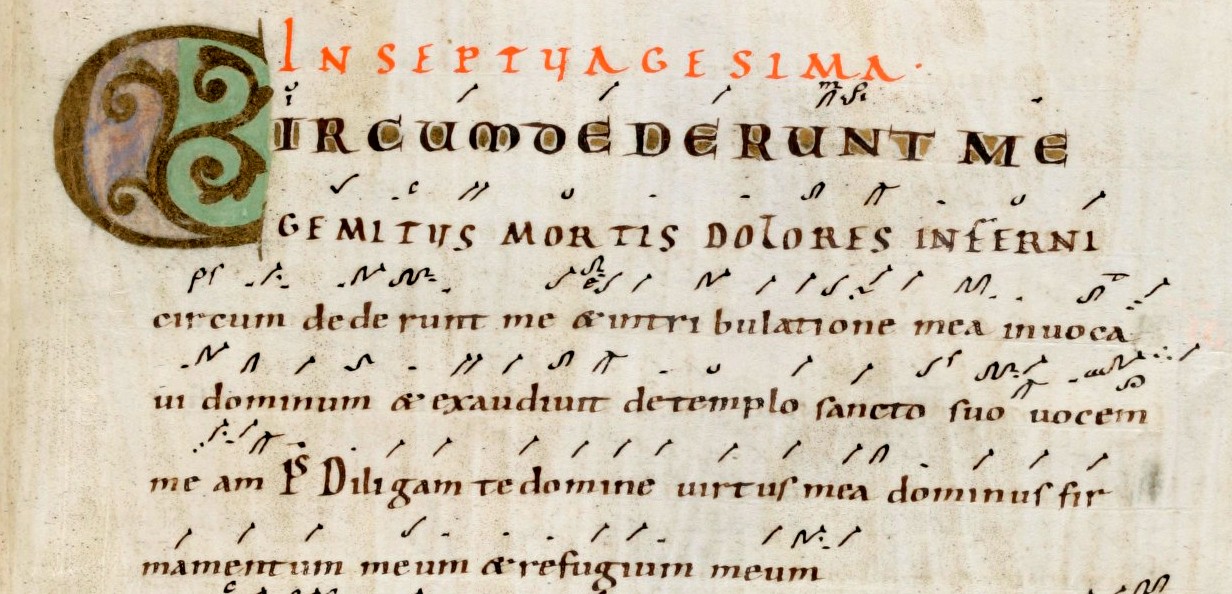 IN SEPTUAGESIMA.
CIRCUMDEDERUNT ME
GEMITUS MORTIS DOLORES INFERNI
circumdederunt me & intribulatione mea inuoca
ui dominum & exaudiuit detemplo sancto suo uocem
me am Ps Diligam te domine uirtus mea dominus fir
mamentum meum & refugium meum